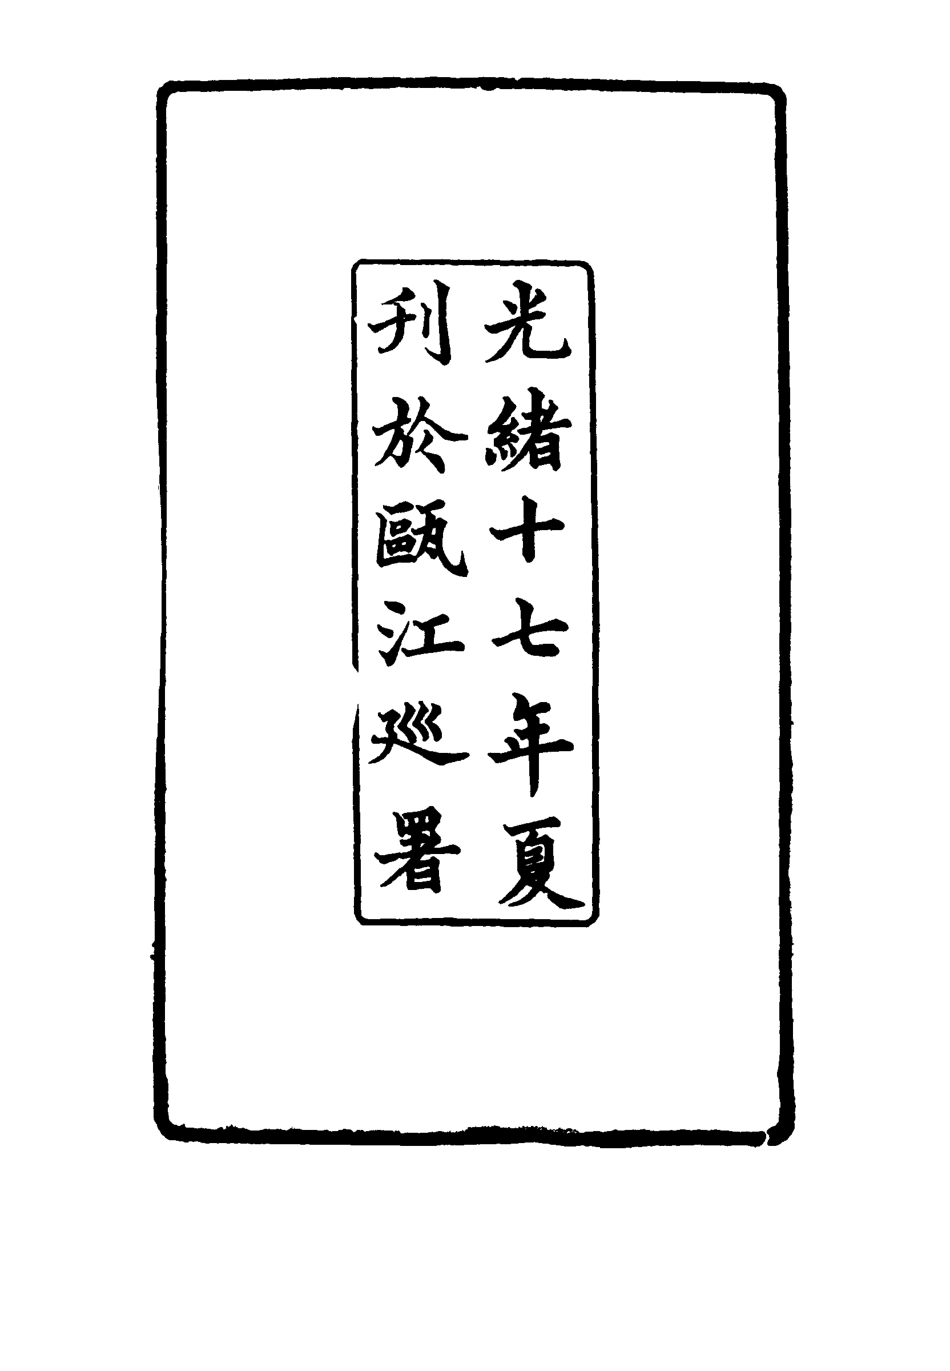 光緒十七年夏
刊於甌江廵署